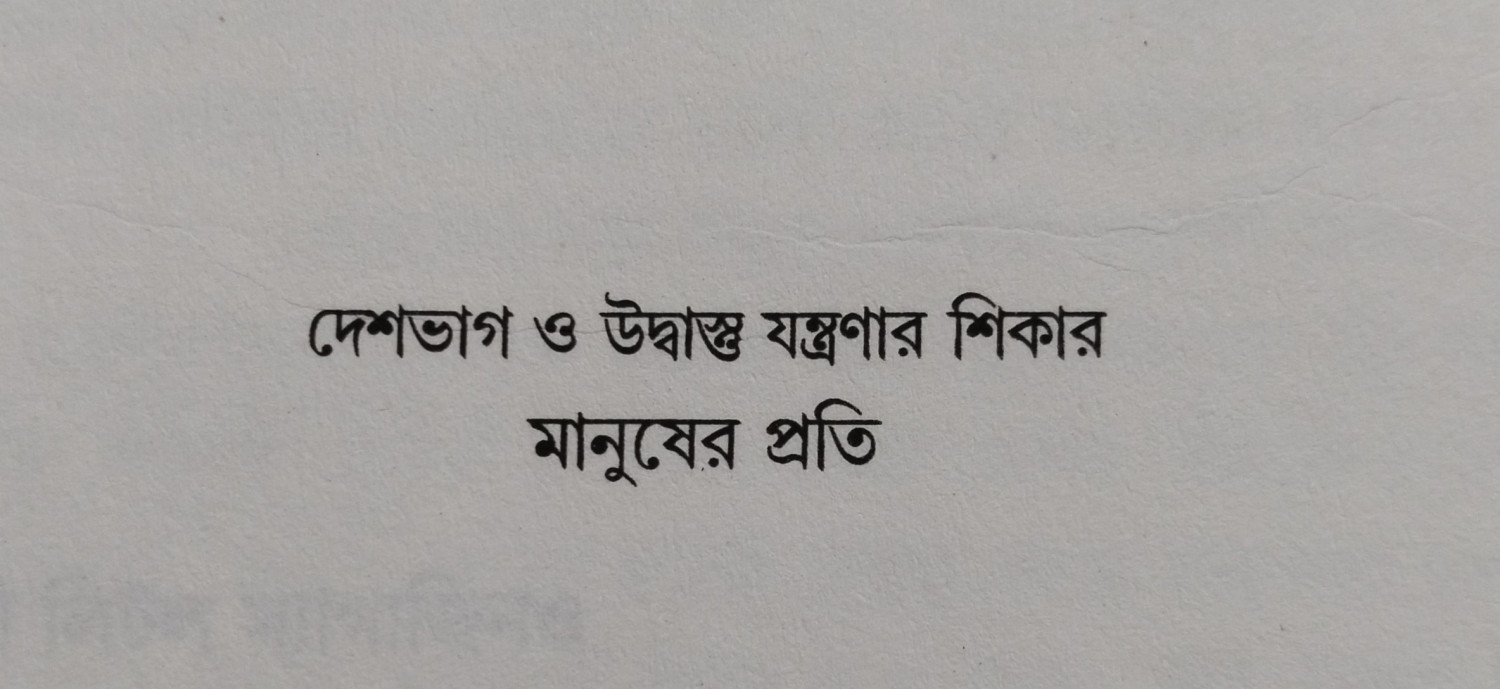 দেশভাগ ও উদ্বাস্তু যন্ত্রণার শিকার
মানুষের প্রতি